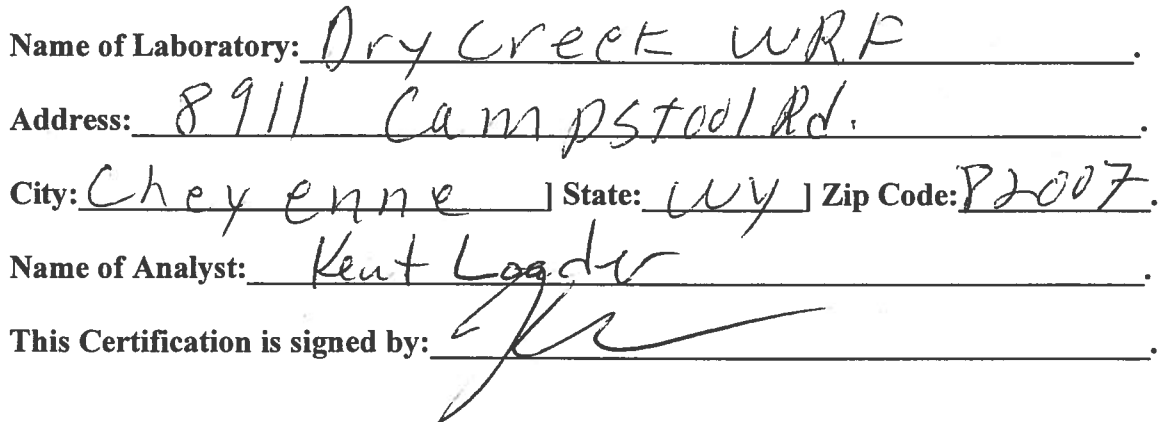 Name of Laboratory: Dry Creek WRF.
Address: 8911 Campstool Rd..
City: Cheyenne] State: WY] Zip Code: 82007.
Name of Analyst: Kent Loader.
This Certification is signed by: .